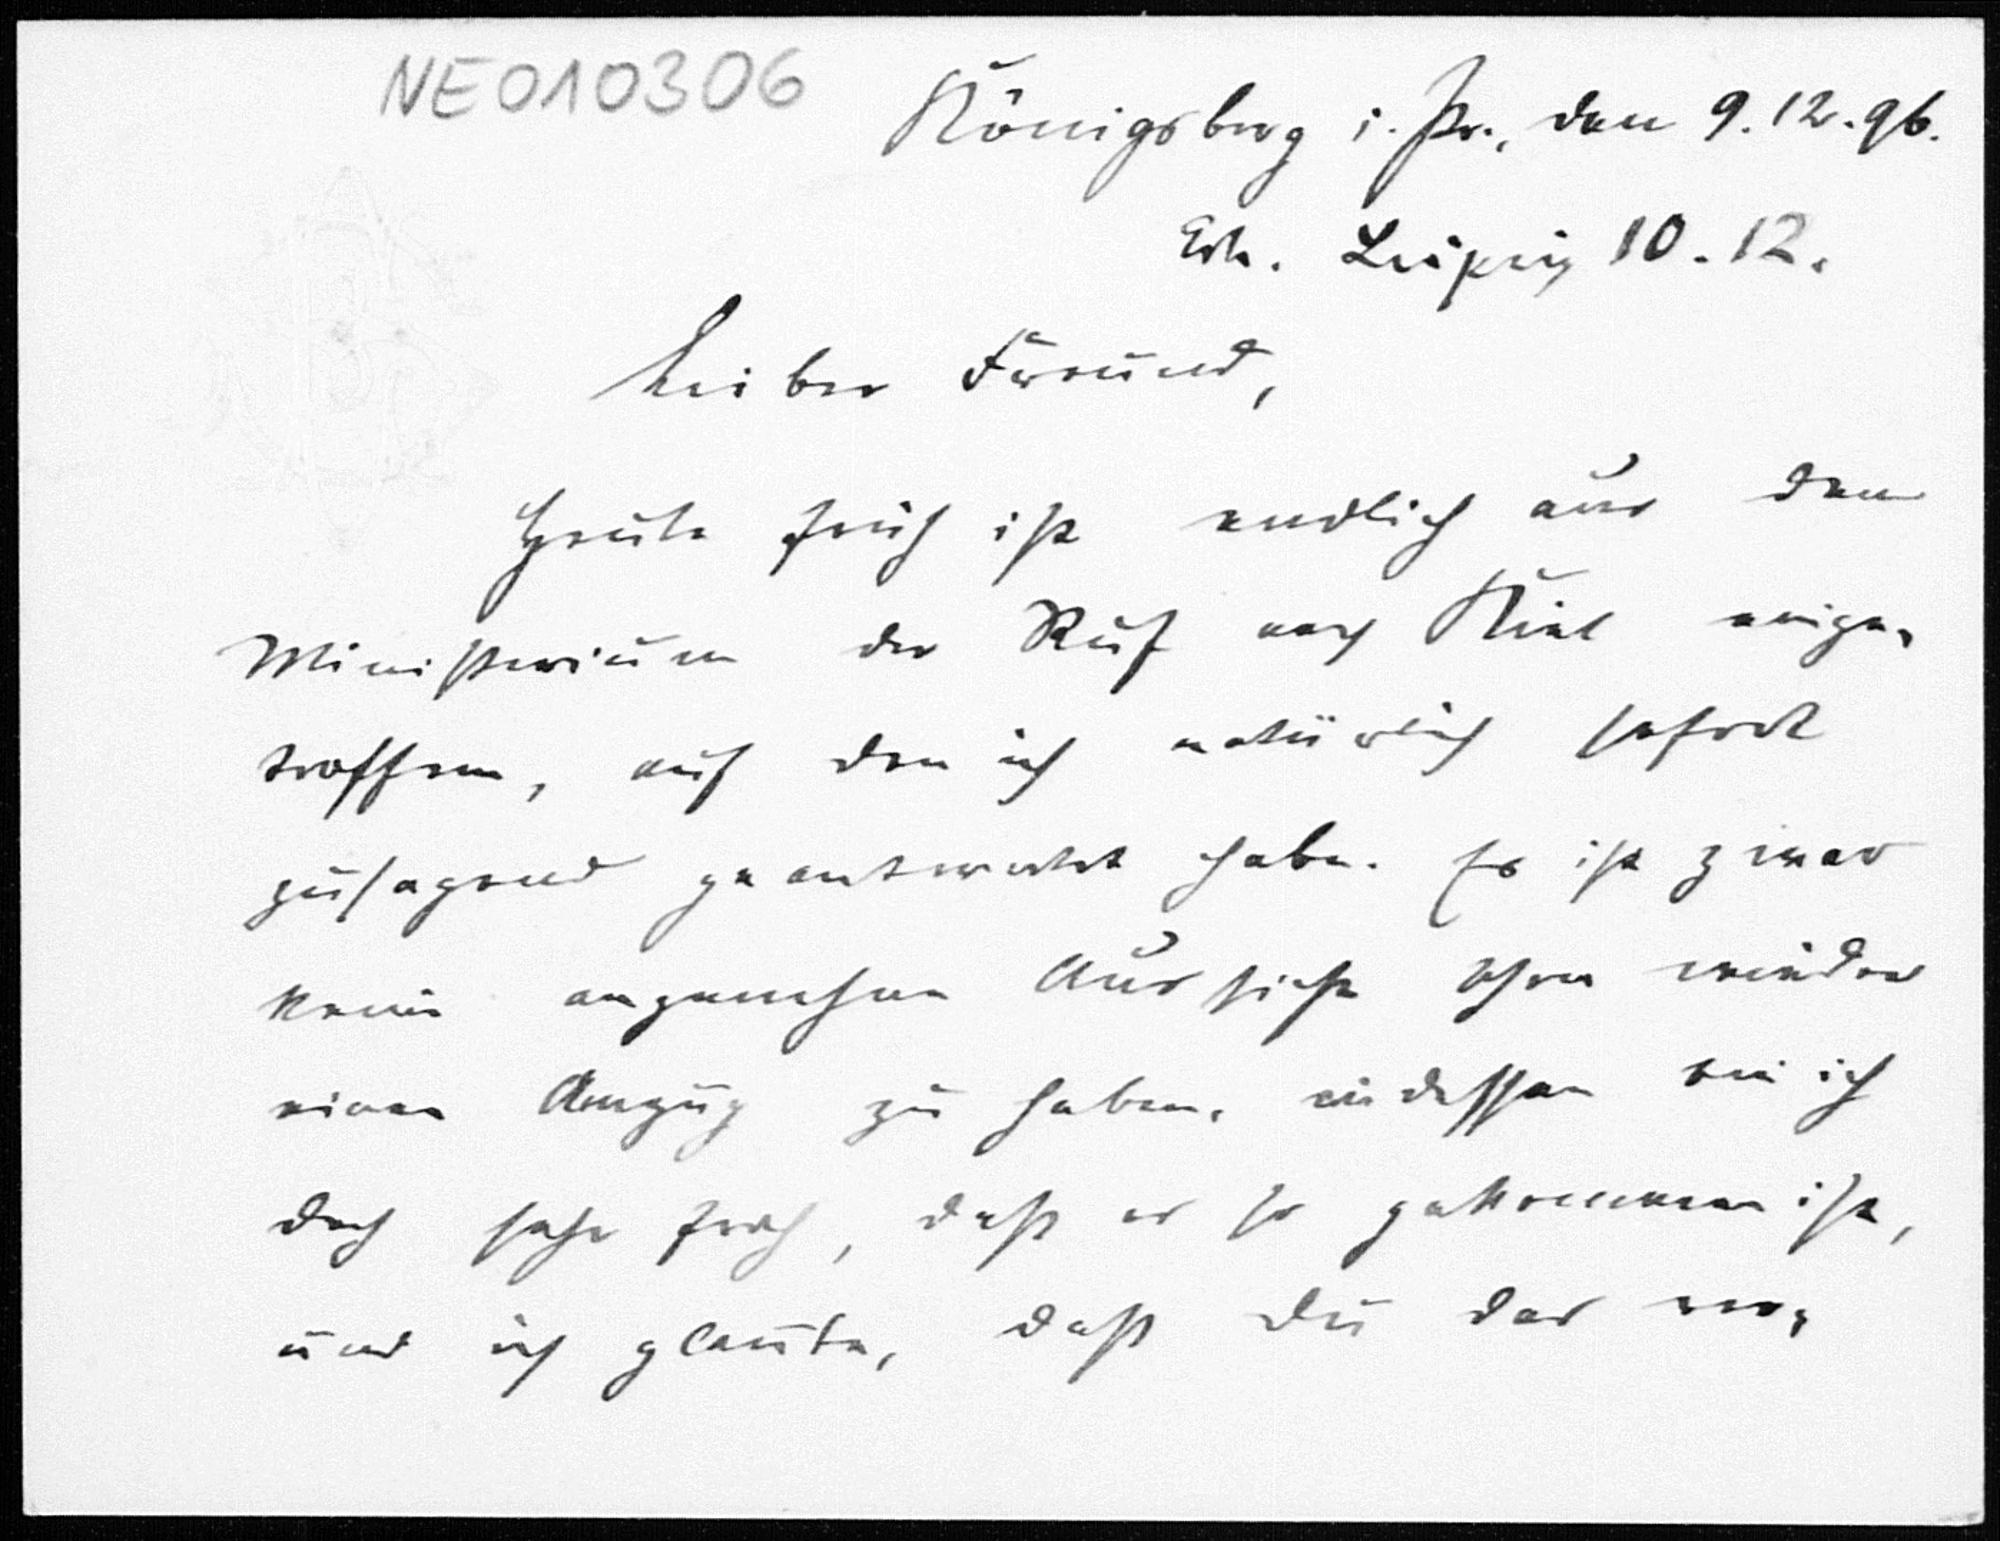 NE010306
Königsberg i. Pr., den 9.12.96.
Erh. Leipzig 10.12.
Lieber Freund,
Heute früh ist endlich aus dem
Ministerium der Ruf nach Kiel einge-
troffen, auf den ich natürlich sofort
zusagend geantwortet habe. Es ist zwar
keine angenehme Aussicht schon wieder
einen Umzug zu haben, indessen bin ich
doch sehr froh, daß es so gekommen ist,
und ich glaube, daß Du das ver-